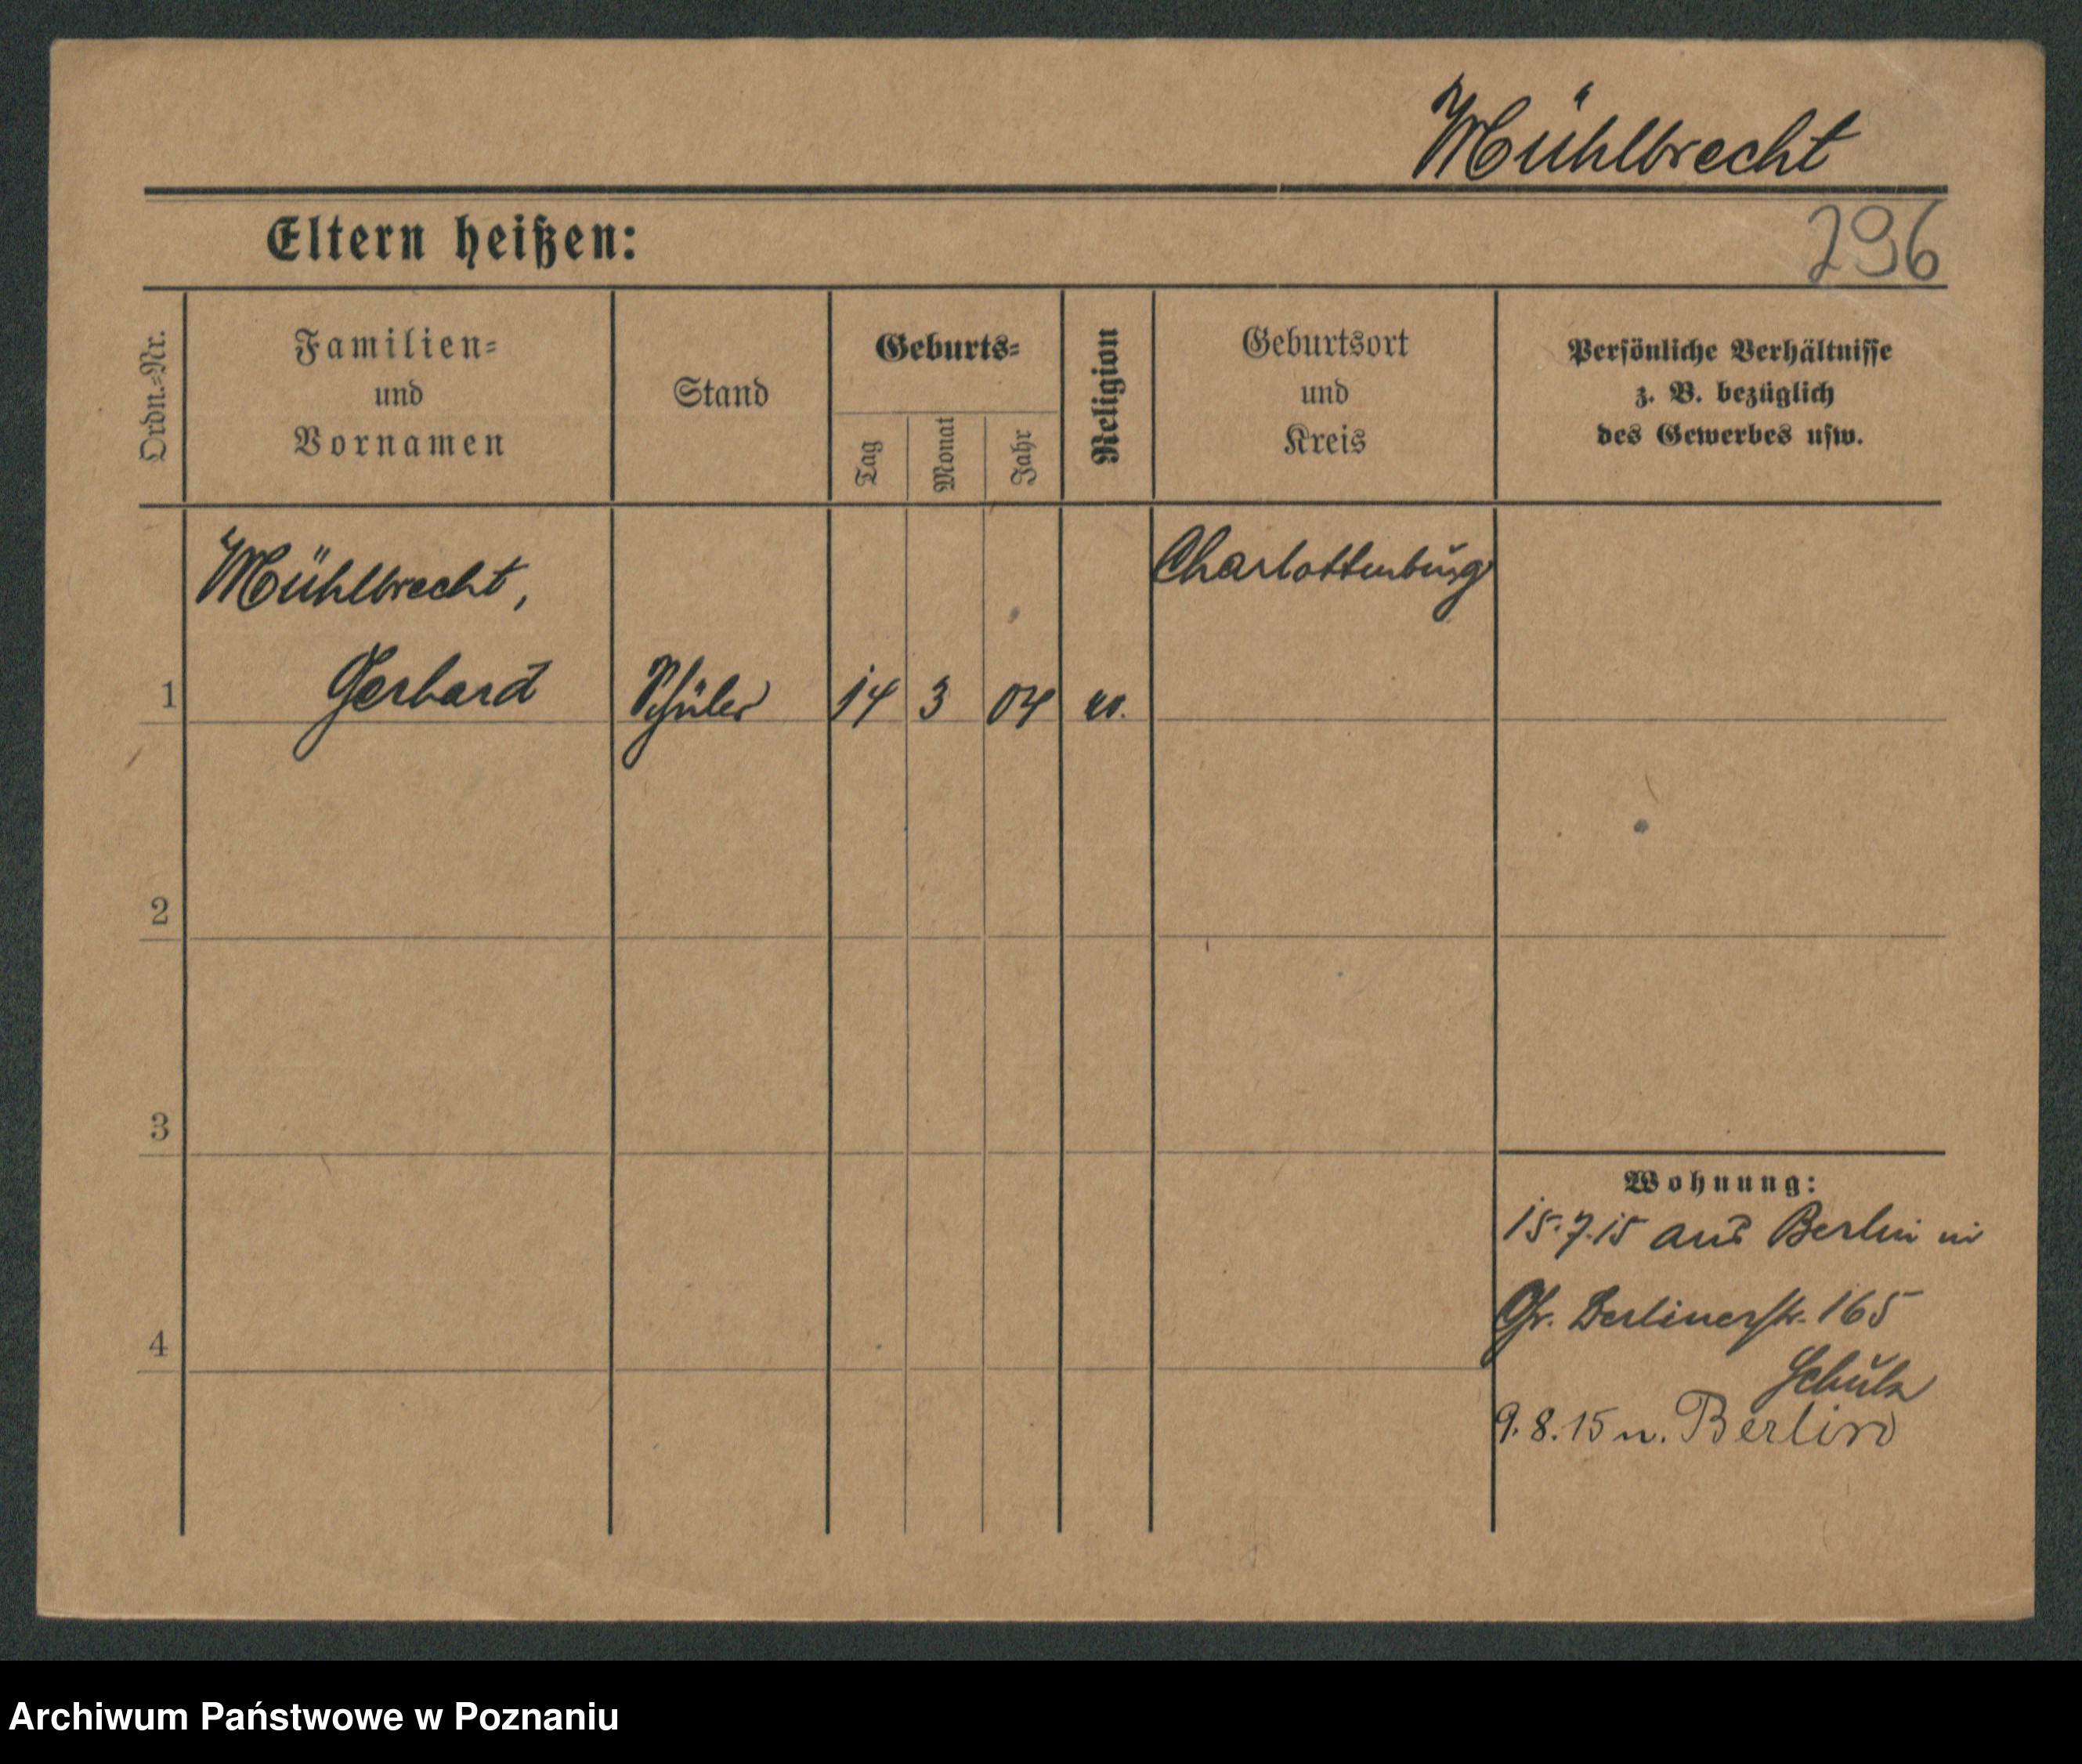 Mühlbrecht
Eltern heißen:
296
Ordn.-Nr.
Familien-
und
Vornamen
Stand
Geburts-
Tag
Monat
Jahr
Religion
Geburtsort
und
Kreis
Persönliche Verhältnisse
z. B. bezüglich
des Gewerbes usw.
Mühlbrecht,
Charlottenburg
1 Gerhard Schüler 14 3 04 ev.
2
3
Wohnung:
15.7.15 aus Berlin in
Gr. Berlinerstr. 165
4
Schulz
9.8.15 n. Berlin
Archiwum Państwowe w Poznaniu